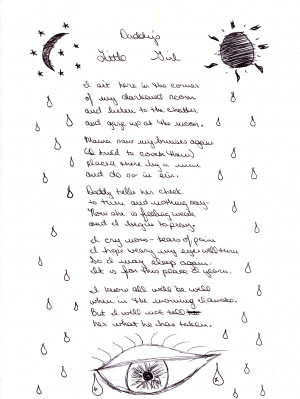 Daddy's
Little Girl
I sit here in the corner
of my darkened room
and listen to the chatter
and gaze up at the moon.
Mama saw my bruises again
(I tried to cover them)
placed there by a man
and do so in sin.
Daddy tells her check
to turn and nothing say.
Now she is feeling weak
and I begin to pray.
I cry more - tears of pain
I hear weary my eyes will turn
So I may sleep again.
It is for this peace I yearn.
I know all will be well
when in the morning I awake.
But I will not tell
her what he has taken.